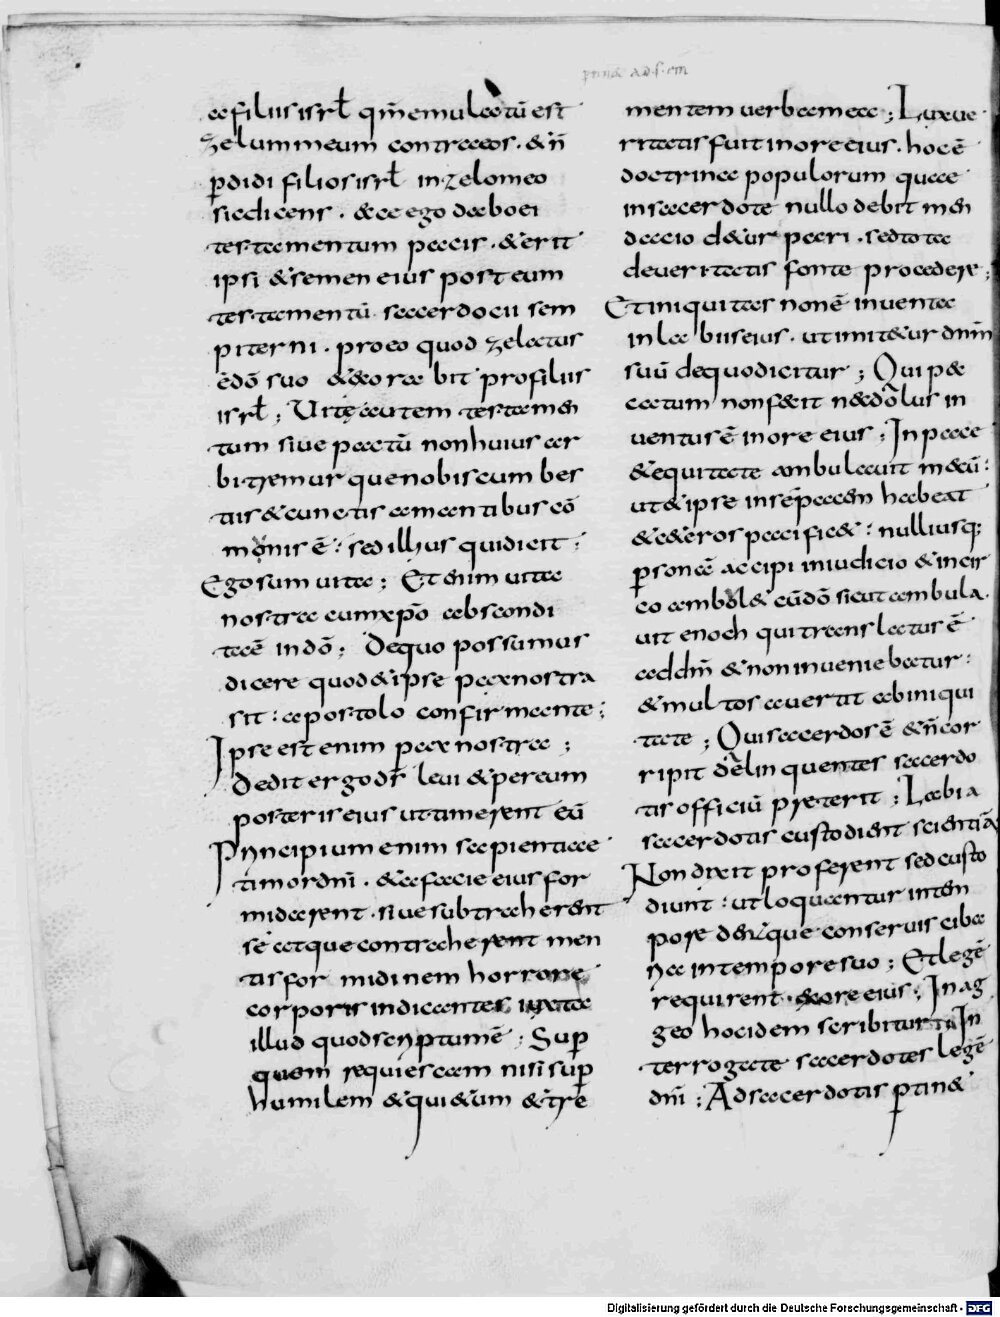 ptin& ad.s.em
a filiis isrł qm̄ emulatū est
zelum meum contra eos. & n̄
p̄didi filios isrł in zelo meo
sic dicens. & ecce ego dabo ei
testamentum pacis. & erit
ipsi & semen eius post eum
testamentū sacerdocii sem
piterni. pro eo quod zelatus
ē dō suo & & orabit pro filiis
isrł; Vitę autem testamen
tum sive pactū non huius ar
bitremur que nobis cum bes
tiis & cunctis amantibus cō
monis ē: sed illius qui dicit;
Ego sum vita; Et enim vita
nostra cum xp̄o abscondi
ta ē in dō; De quo possumus
dicere quod & ipse pax nostra
sit: apostolo confirmante;
Ipse est enim pax nostra;
Dedit ergo ds̄ levi & per eum
posteris eius ut timerent eū
Principium enim sapientiae
timor dnī. & a facie eius for
midarent. sive subtraherent
se atque contraherent men
tis formidinem horrore
corporis indicantes iuxta
illud quod scriptum ē; Sup̄
quem requiescam nisi sup̄
humilem & qui&um & tre
mentem verba mea; Lex ve
ritatis fuit in ore eius. hoc ē
doctrina populorum quae
in sacerdote nullo debit men
dacio d&urpari. sed tota
de veritatis fonte procedere;
Et iniquitas non ē inventa
in labiis eius. ut imit&ur dnm̄
suū de quo dicitur; Qui pec
catum non fecit nec dolus in
ventus ē in ore eius; In pace
& equitate ambulavit mecū:
ut & ipse in se pacem habeat
& c&eros pacific&: nulliusq;
p̄sonā accipi in iudicio & in cir
co ambul& cū dō sicut ambula
vit enoch qui translatus ē
ad dm̄ & non inveniebatur:
& multos avertit ab iniqui
tate; Qui sacerdos ē & n̄ cor
ripit delinquentes sacerdo
tis officiū preterit; Labia
sacerdotis custodient scientiā
Non dixit proferent sed custo
diunt: ut loquantur in tem
pore denique conservis ciba
ria in tempore suo; Et legē
requirent ex ore eius; In ag
geo hoc idem scribitur In
terrogate sacerdotes legē
dnī; Ad sacerdotis p̄tin&
Digitalisierung gefördert durch die Deutsche Forschungsgemeinschaft - DFG